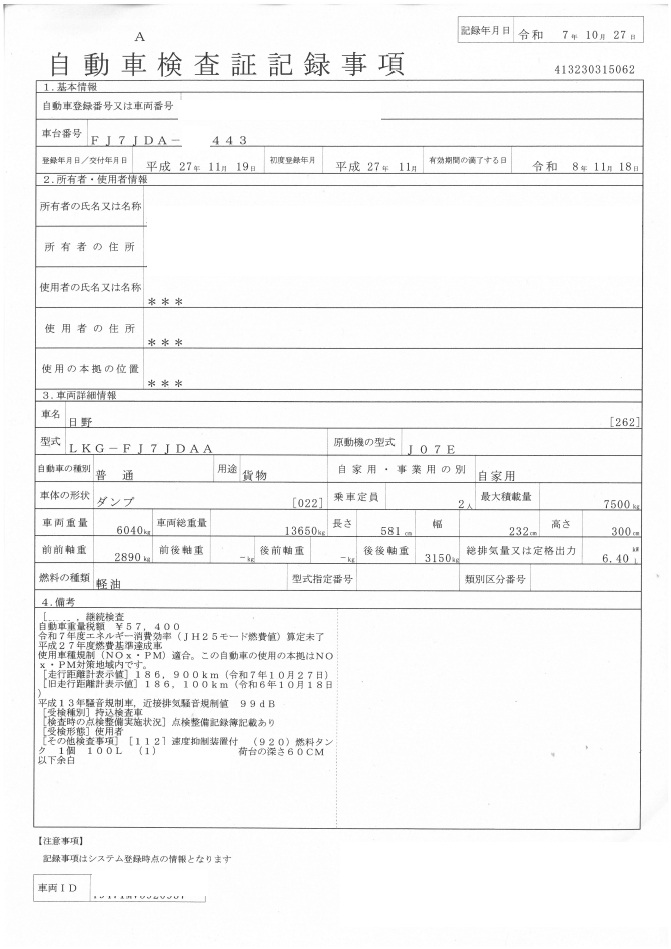 記録年月日 令和 7年 10月 27日
A
自動車検査証記録事項
413230315062
1.基本情報
自動車登録番号又は車両番号
車台番号 FJ7JDA− 443
登録年月日/交付年月日 平成 27年 11月 19日 初度登録年月 平成 27年 11月 有効期間の満了する日 令和 8年 11月 18日
2.所有者・使用者情報
所有者の氏名又は名称
所有者の住所
使用者の氏名又は名称 ***
使用者の住所 ***
使用の本拠の位置 ***
3.車両詳細情報
車名 日野 [262]
型式 LKG−FJ7JDAA 原動機の型式 J07E
自動車の種別 普通 用途 貨物 自家用・事業用の別 自家用
車体の形状 ダンプ [022] 乗車定員 2人 最大積載量 7500kg
車両重量 6040kg 車両総重量 13650kg 長さ 581cm 幅 232cm 高さ 300cm
前前軸重 2890kg 前後軸重 −kg 後前軸重 −kg 後後軸重 3150kg 総排気量又は定格出力 6.40 kW L
燃料の種類 軽油 型式指定番号 類別区分番号
4.備考
継続検査
自動車重量税額 ¥57,400
令和7年度エネルギー消費効率(JH25モード燃費値)算定未了
平成27年度燃費基準達成車
使用車種規制(NOx・PM)適合。この自動車の使用の本拠はNO
x・PM対策地域内です。
[走行距離計表示値]186,900km(令和7年10月27日)
[旧走行距離計表示値]186,100km(令和6年10月18日
)
平成13年騒音規制車,近接排気騒音規制値 99dB
[受検種別]持込検査車
[検査時の点検整備実施状況]点検整備記録簿記載あり
[受検形態]使用者
[その他検査事項][112]速度抑制装置付 (920)燃料タン
ク 1個 100L (1) 荷台の深さ60CM
以下余白
【注意事項】
記録事項はシステム登録時点の情報となります
車両ID